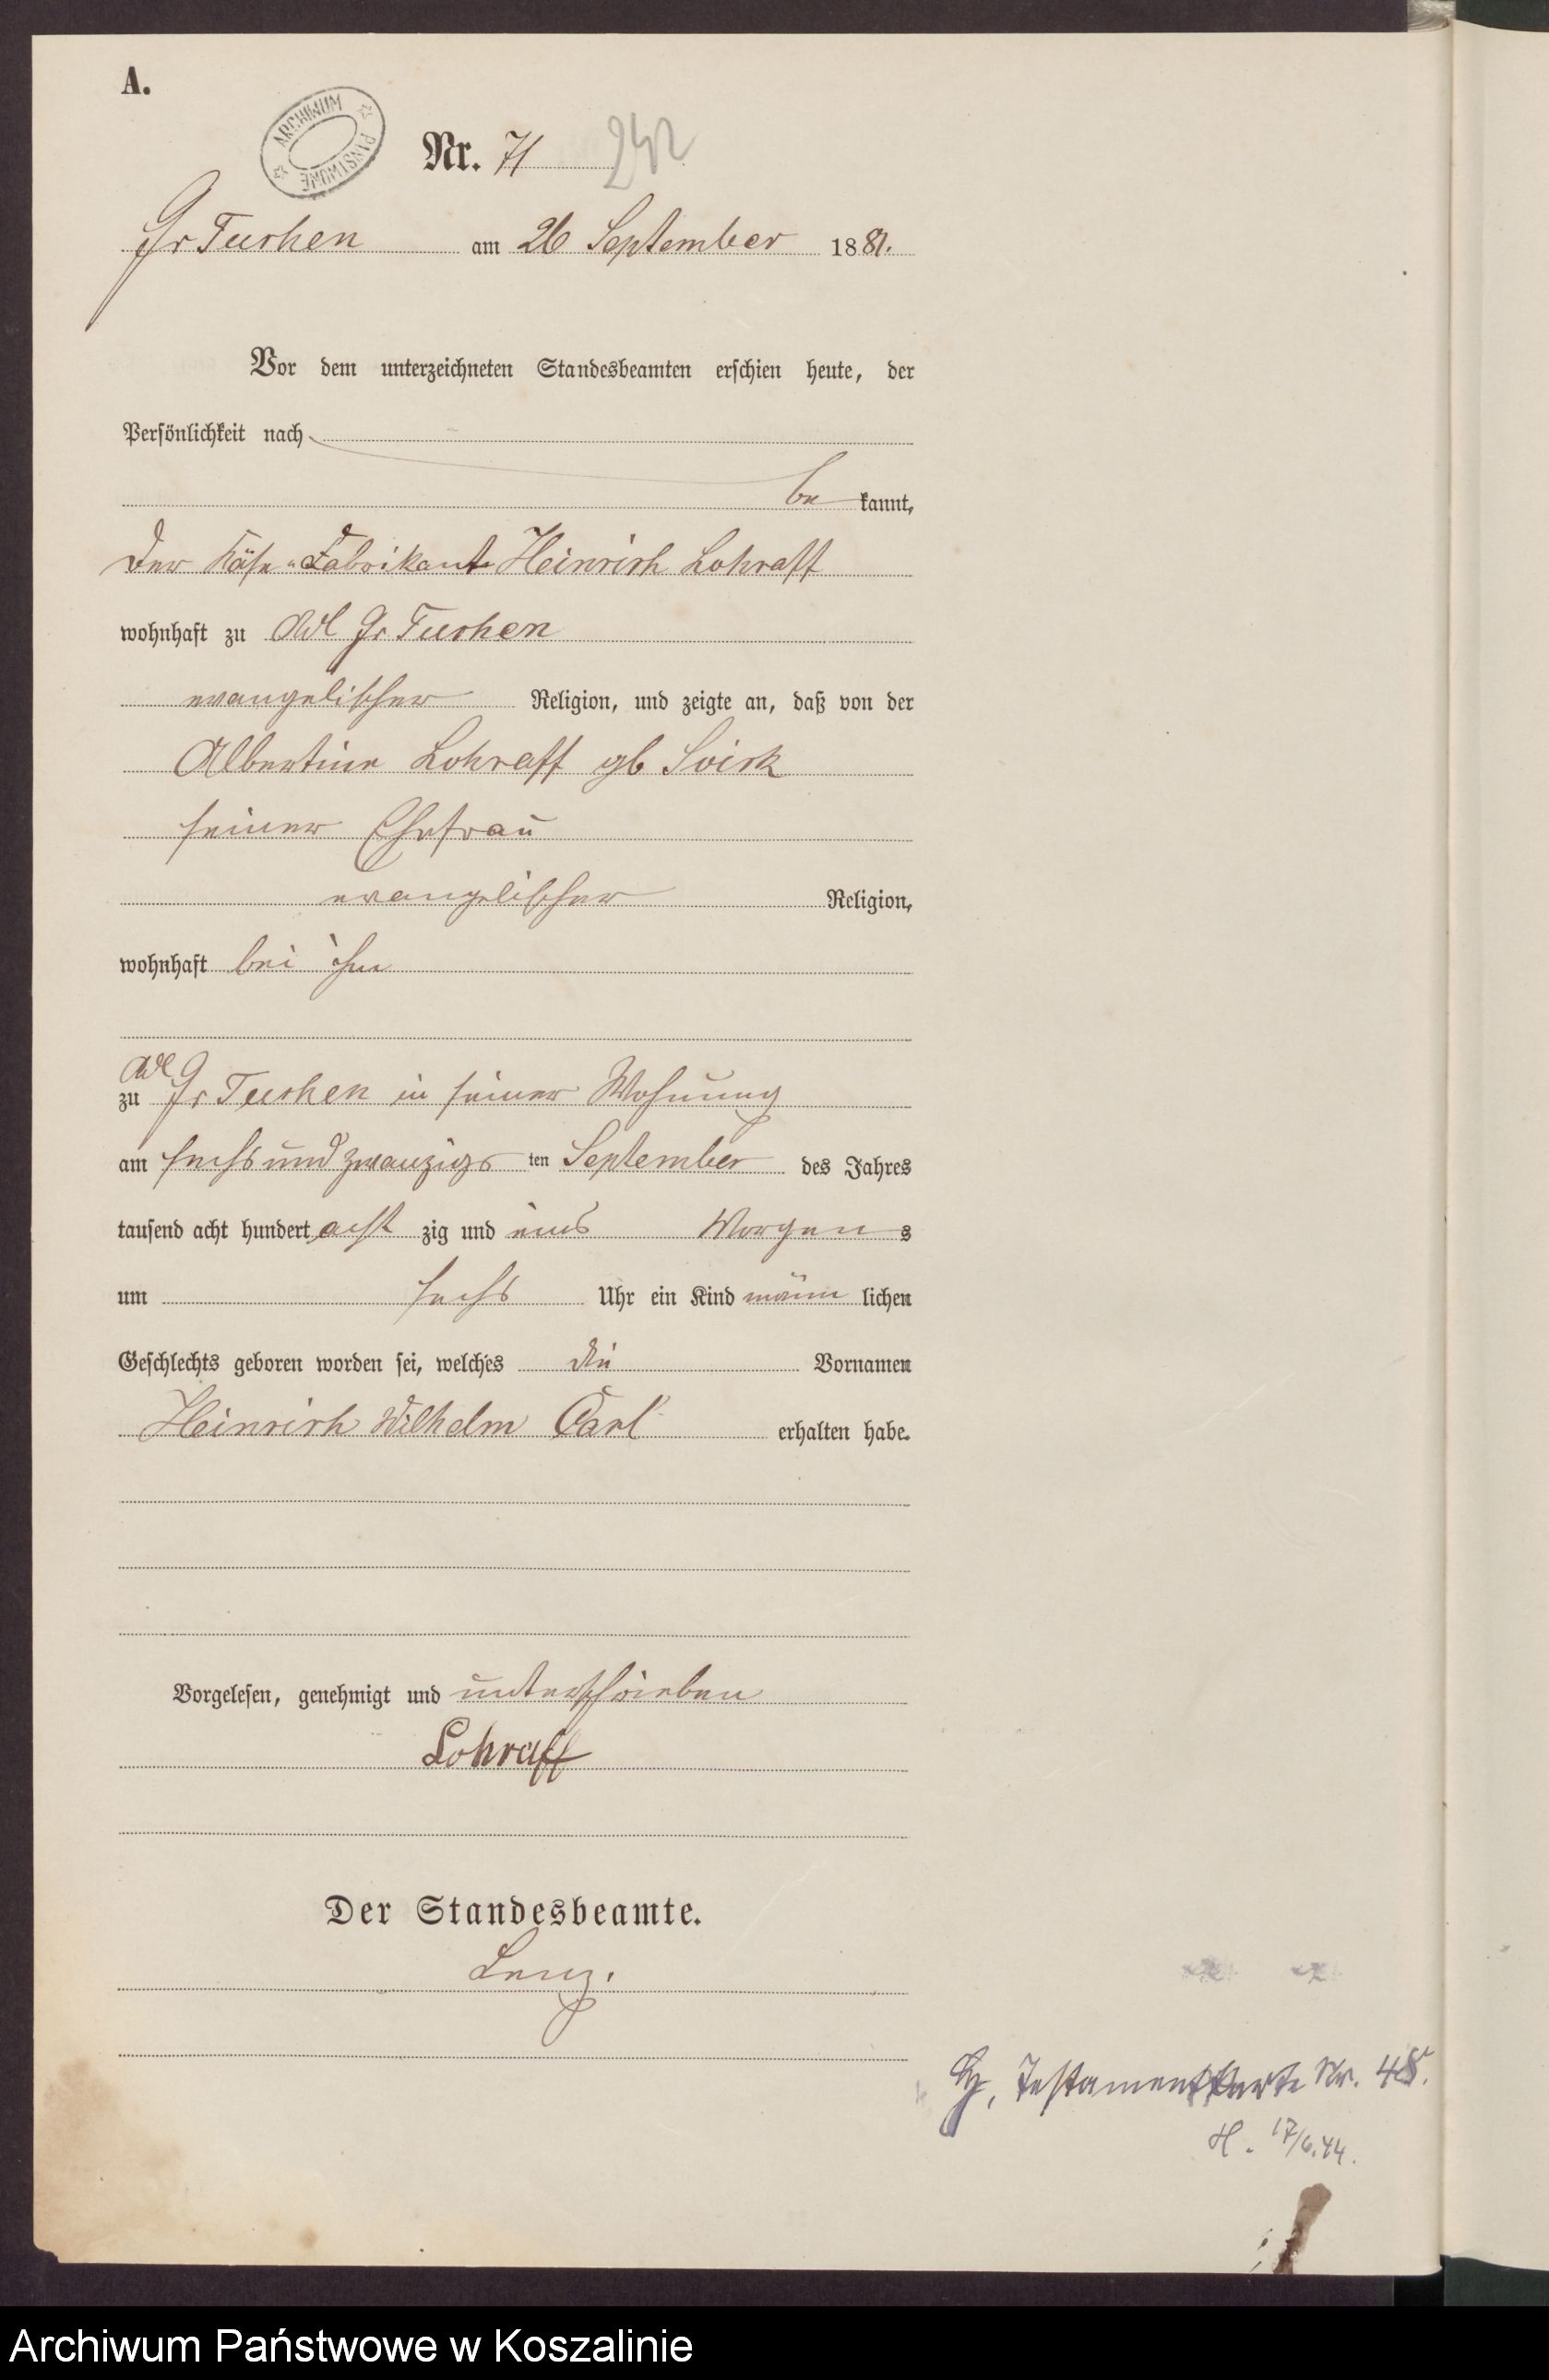 A.
ARCHIWUM PAŃSTWOWE
Nr. 71 242
Gr Tuchen am 26 September 1881.
Vor dem unterzeichneten Standesbeamten erschien heute, der
Persönlichkeit nach
be kannt,
der Käse-Fabrikant Heinrich Lohraff
wohnhaft zu Adl Gr Tuchen
evangelischer Religion, und zeigte an, daß von der
Albertine Lohraff gb
seiner Ehefrau
evangelischer Religion,
wohnhaft bei ihm
Adl
zu Gr Tuchen in seiner Wohnung
am sechs und zwanzigs ten September des Jahres
tausend acht hundert acht zig und eins Morgens
um sechs Uhr ein Kind männ lichen
Geschlechts geboren worden sei, welches die Vornamen
Heinrich Wilhelm Carl erhalten habe.
Vorgelesen, genehmigt und unterschrieben
Lohraff
Der Standesbeamte.
Lenz.
Testamentskarte Nr. 48.
H. 17/6.44.
Archiwum Państwowe w Koszalinie